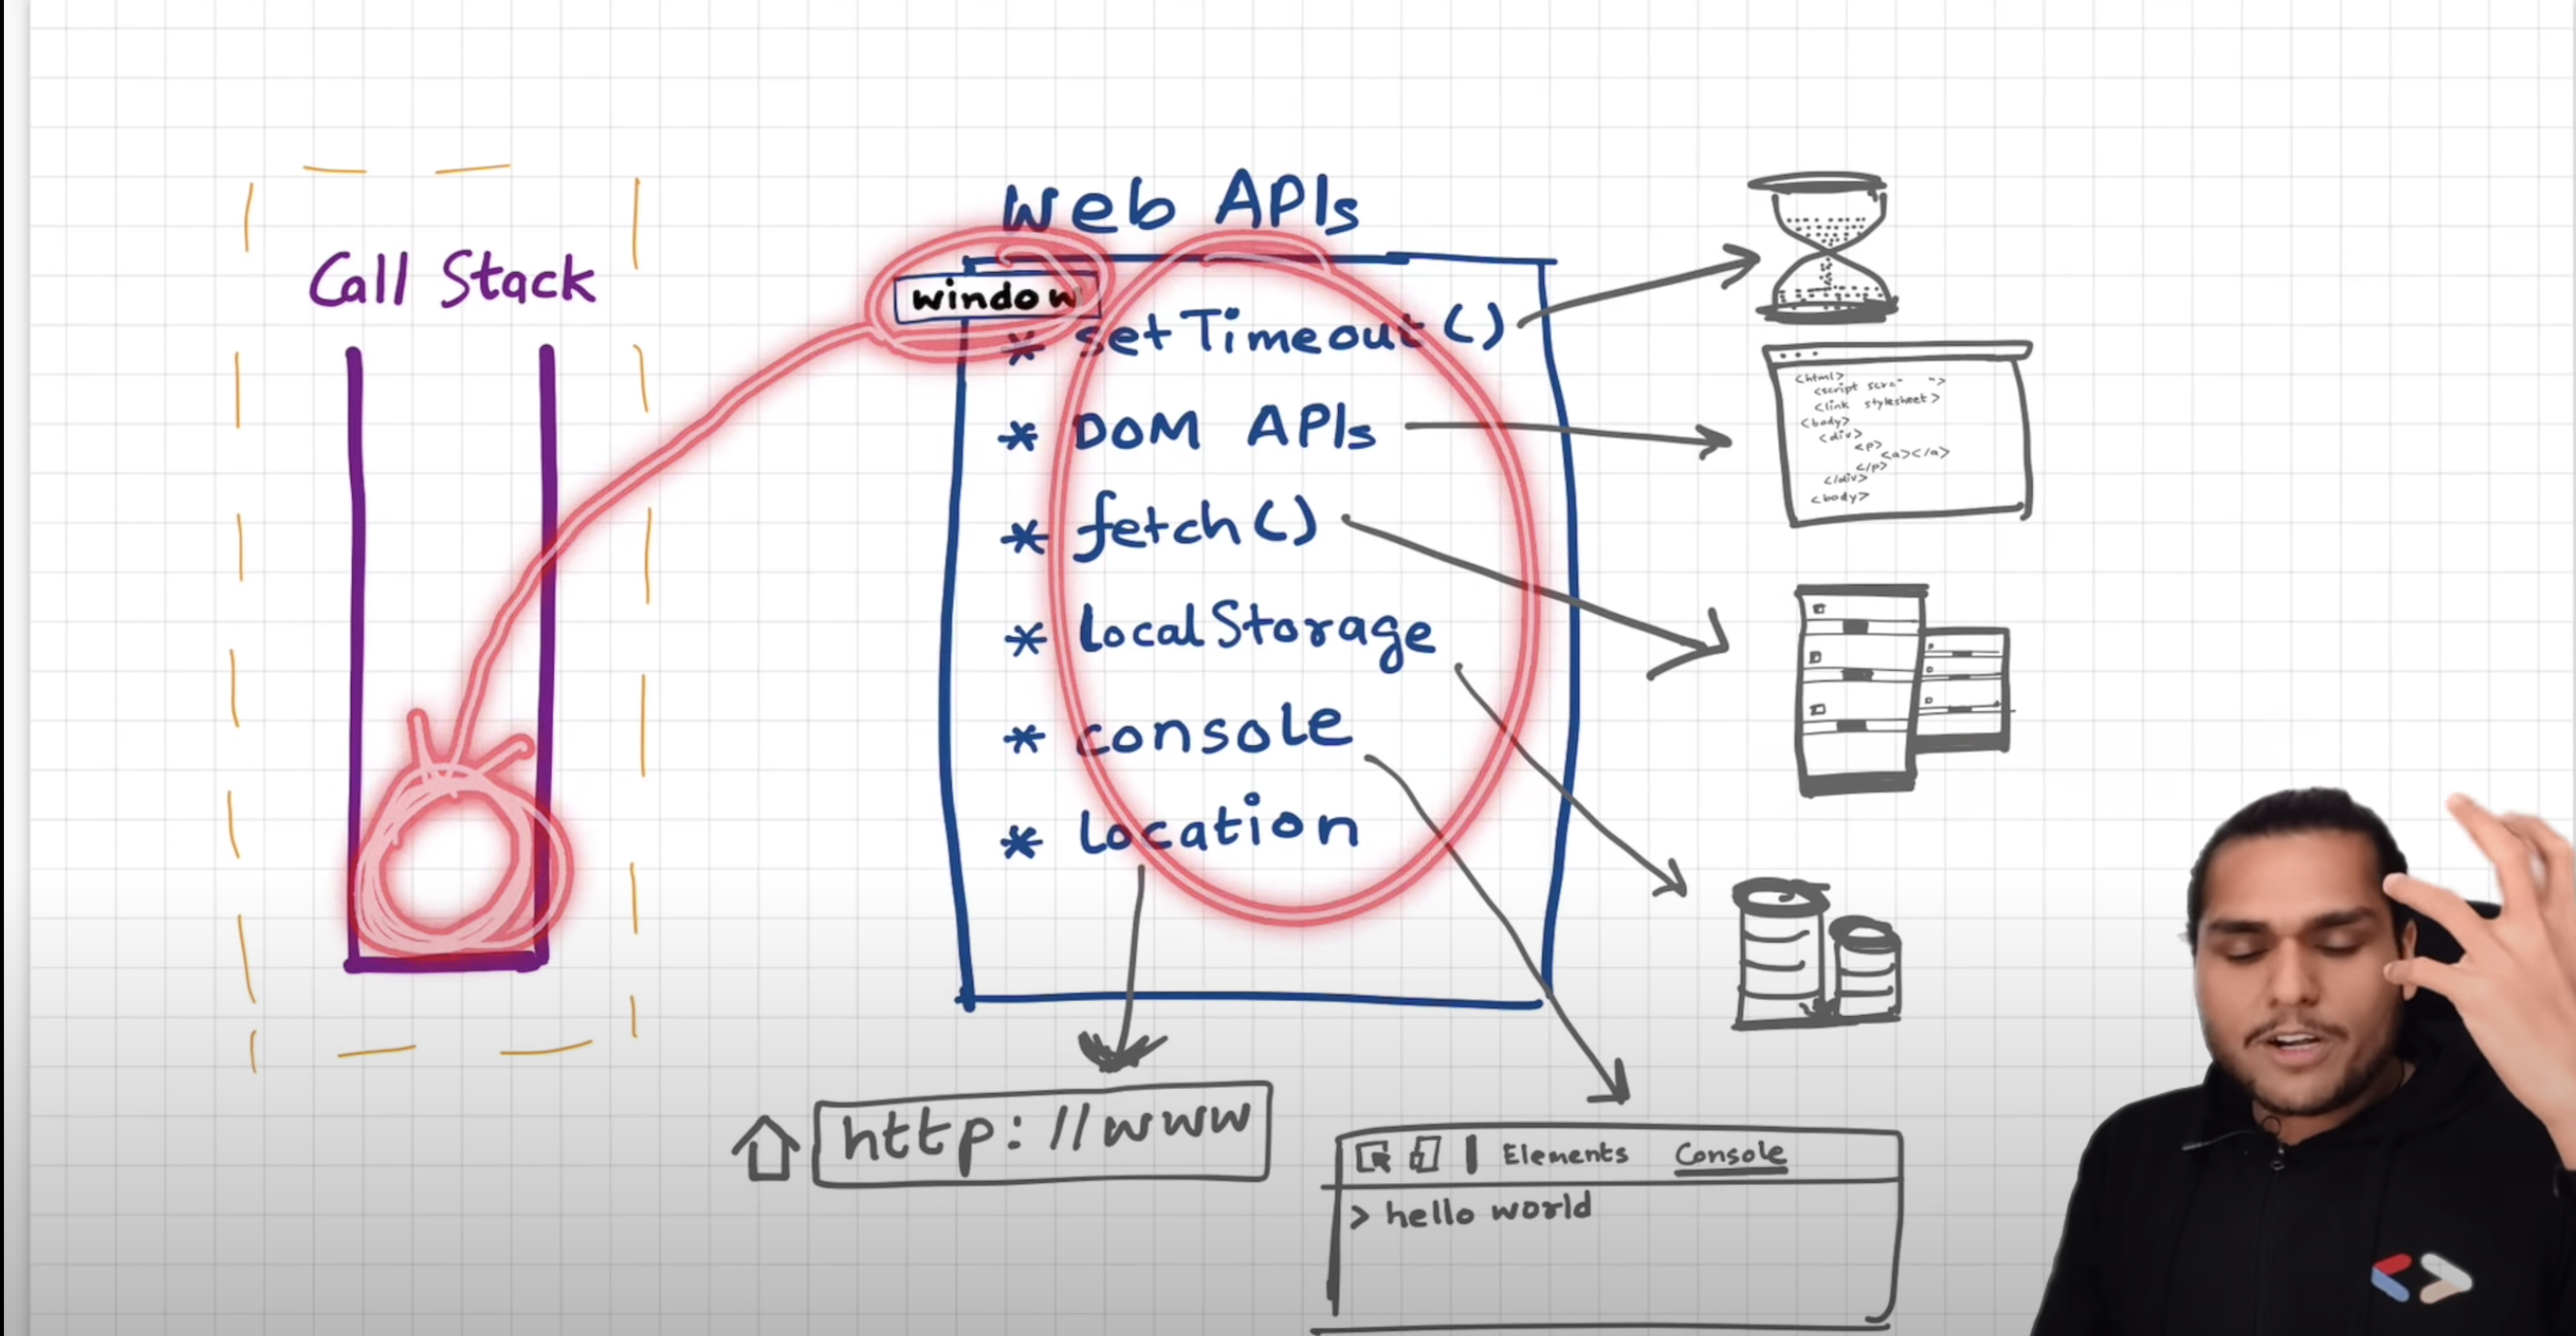 Web APIs
Call Stack
window
* setTimeout()
* DOM APIs
* fetch()
* localStorage
* console
* location
<html>
<link stylesheet>
<body>
<div>
<p>
<a></a>
</p>
</div>
<body>
http://www
Elements Console
> hello world